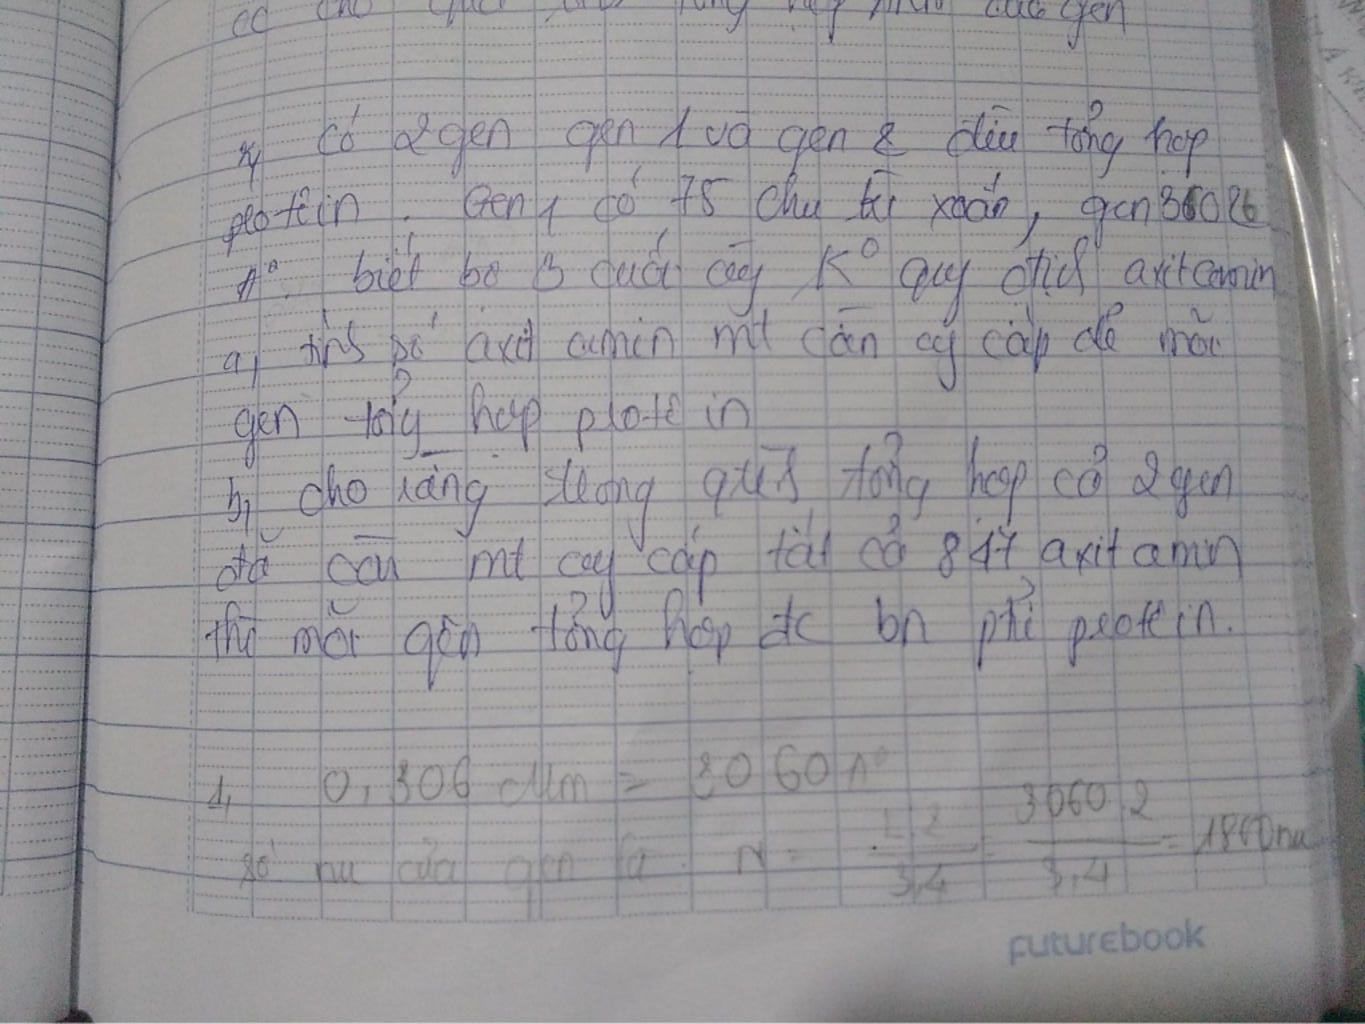 có 2 gen gen 1 và gen 2 đều tổng hợp
plotêin. Gen 1 có 75 chu kì xoắn, gen
A° biết bộ 3 cuối cùg K° quy địch axitamin
a, tính số axit amin mt cần cg cấp để mỗi
gen tổg hợp plotêin
b, cho rằng trong qtrìh tổng hợp cả 2 gen
đã cần mt cug cấp tất cả 847 axit amin
thì mỗi gen tổng hợp đc bn ptử protêin.
1, 0,306 Mm = 3060 A°
số nu của gen là N = L.2/3,4 = 3060.2/3,4 = 1800nu
FUTUREBOOK